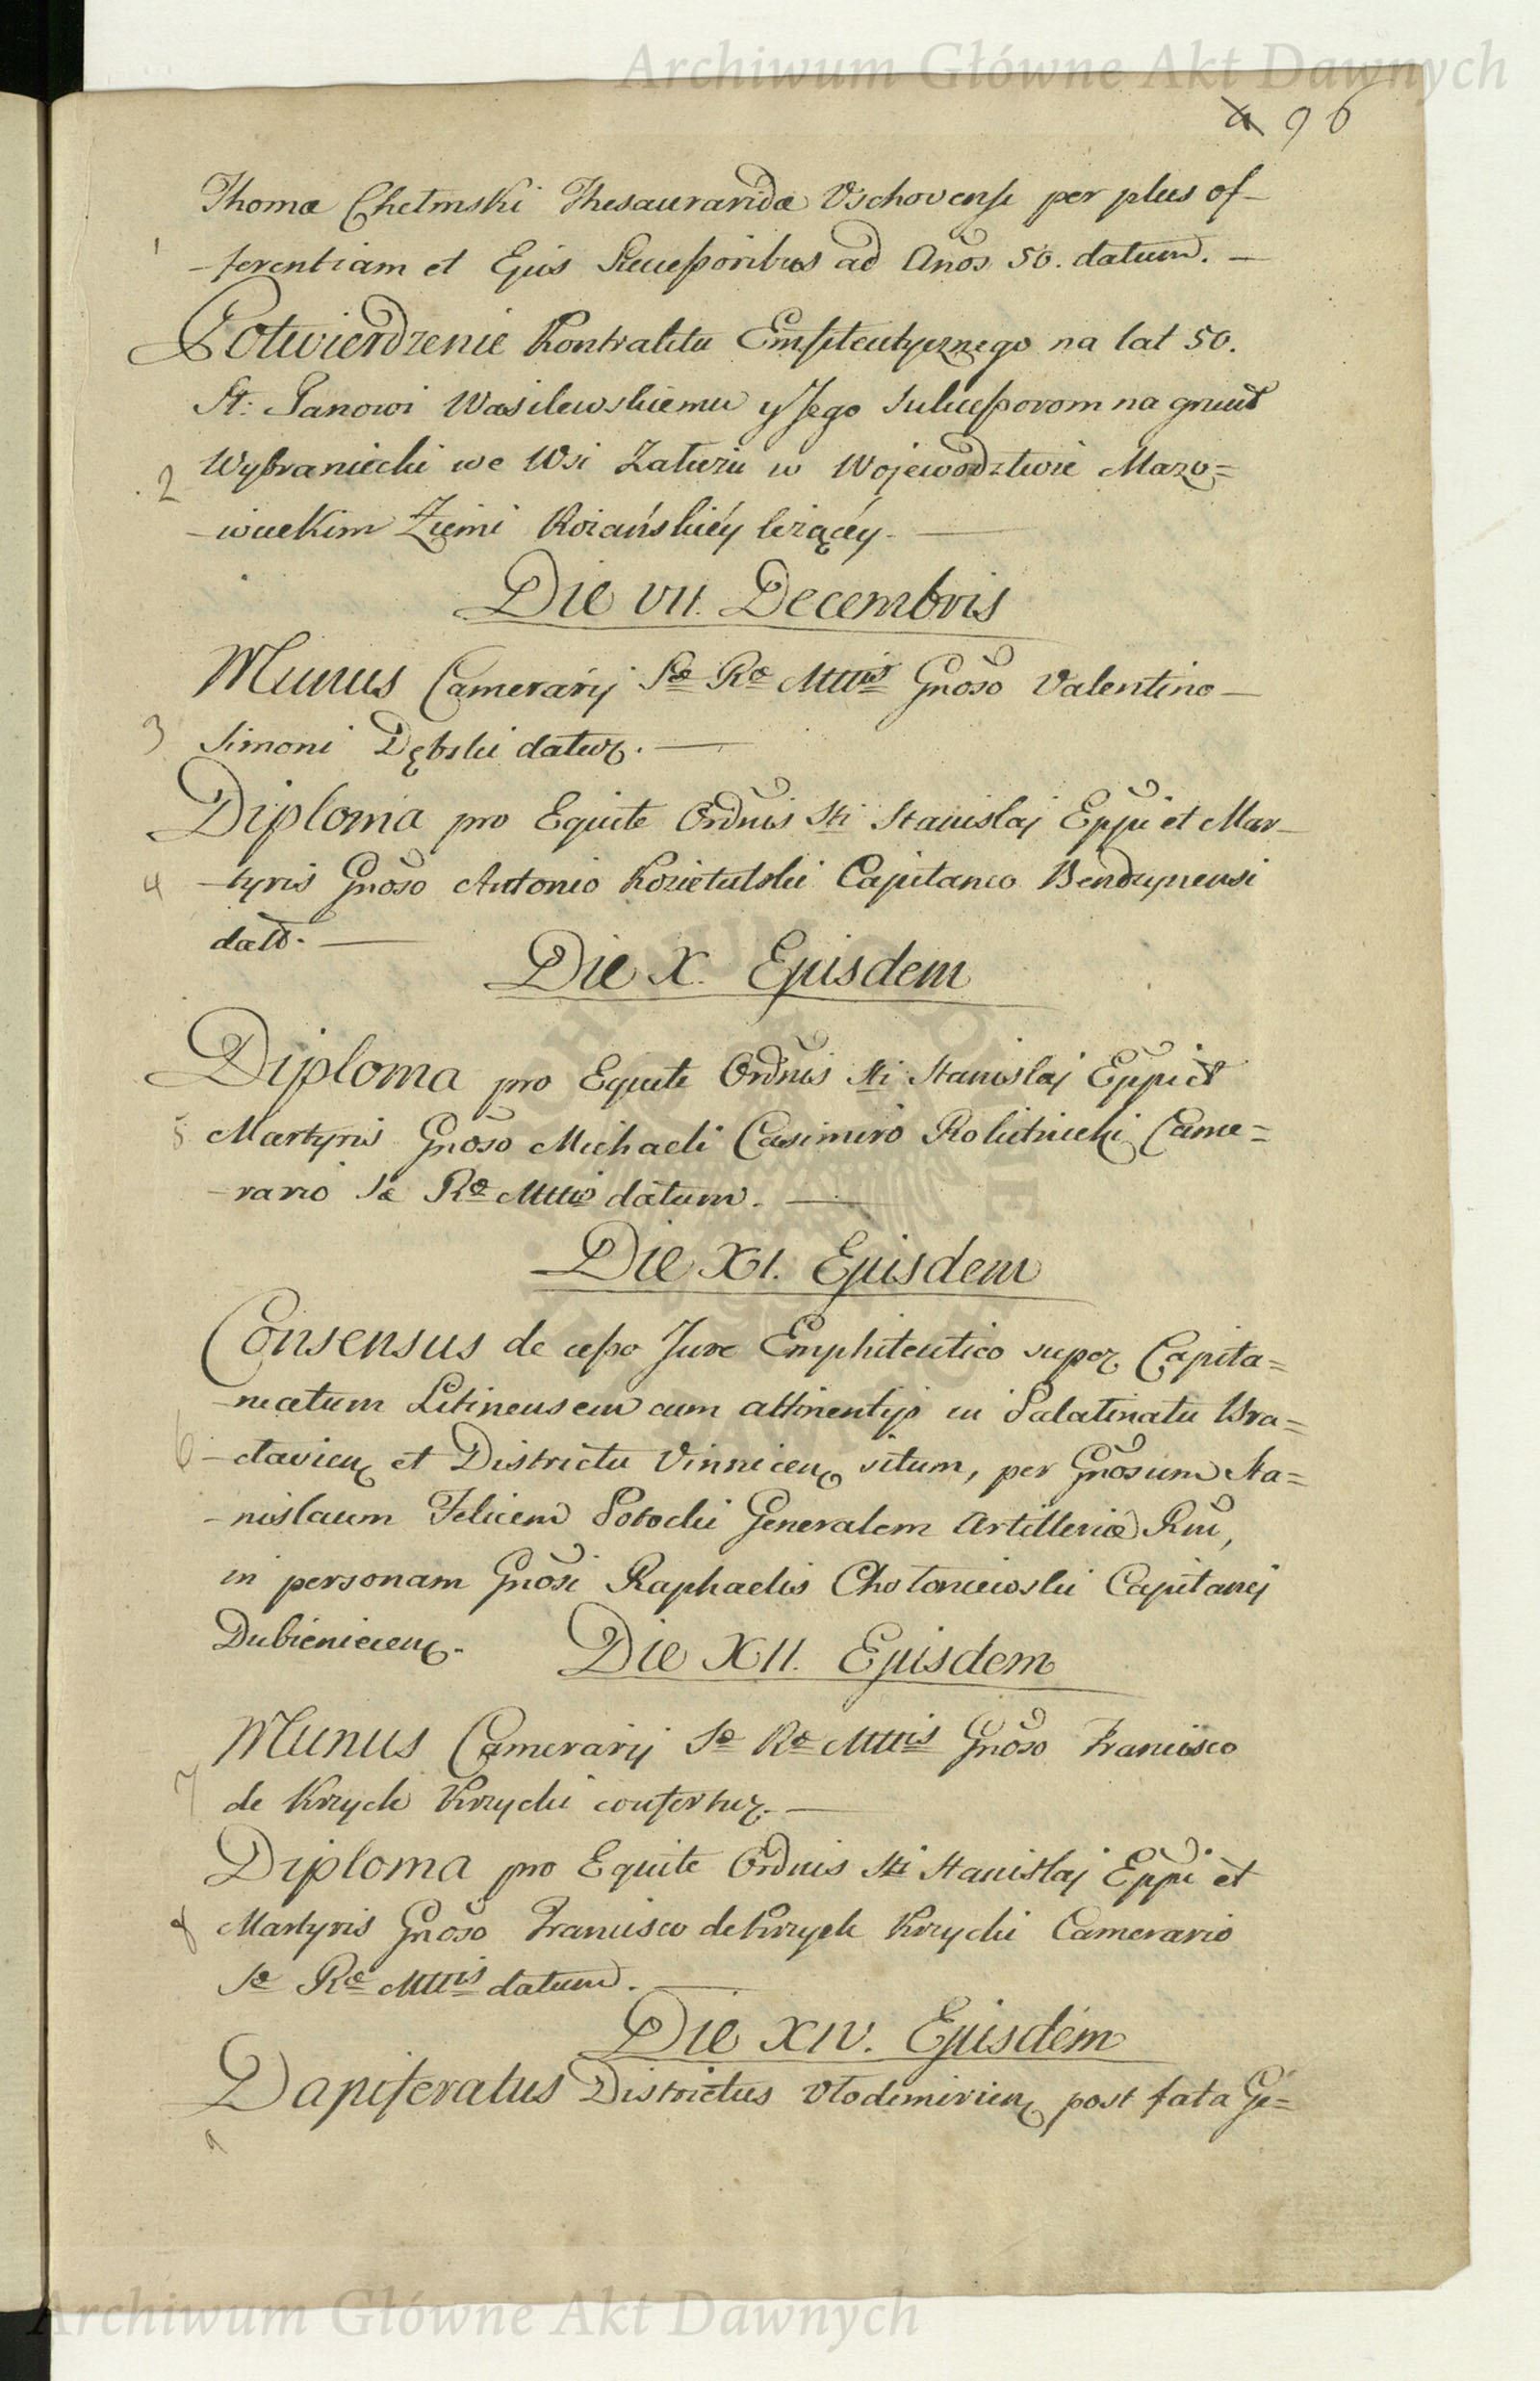 Archiwum Główne Akt Dawnych
96
Thomæ Chełmski Thesauraridæ Vschovensi per plus of-
1 -ferentiam et Ejus Successoribus ad Años 50. datum. —
Potwierdzenie Kontraktu Emfiteutycznego na lat 50.
St: Panowi Wasilewskiemu y Jego Sukcessorom na grunt
2 Wybraniecki we Wsi Załuziu w Wojewodztwie Mazo=
-wieckim Ziemi Rożańskiéy leżącéy. —
Die VII. Decembris
Munus Camerarij Sæ Ræ Mttis Gnoso Valentino —
3 Simoni Dębski datur. —
Diploma pro Equite Ordnis Sti Stanislaj Eppi et Mar-
4 -tyris Gnoso Antonio Kozietulski Capitaneo Bendzynensi
datt. —
Die X. Ejusdem
Diploma pro Equite Ordnis Sti Stanislaj Eppi et
5 Martyris Gnoso Michaeli Casimiro Rokitnicki Came=
-rario Sæ Ræ Mttis datum. —
Die XI. Ejusdem
Consensus de cesso Jure Emphiteutico super Capita=
-neatum Litinensem cum attinentijs in Palatinatu Bra=
6 -clavien et Districtu Vinnicen situm, per Gnosum Sta=
-nislaum Felicem Potocki Generalem Artilleriæ Rni,
in personam Gnosi Raphaelis Chołoniewski Capitanej
Dubieniecen.
Die XII. Ejusdem
Munus Camerarij Sæ Ræ Mttis Gnoso Francisco
7 de Krzycko Krzycki confertur. —
Diploma pro Equite Ordnis Sti Stanislaj Eppi et
8 Martyris Gnoso Francisco de Krzycko Krzycki Camerario
Sæ Ræ Mttis datum. —
Die XIV. Ejusdem
Dapiferatus Districtus Vlodimirien post fata Ge=
9
Archiwum Główne Akt Dawnych